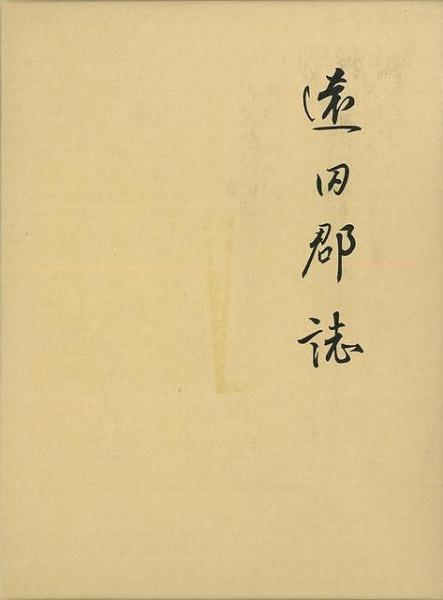 遠田郡誌